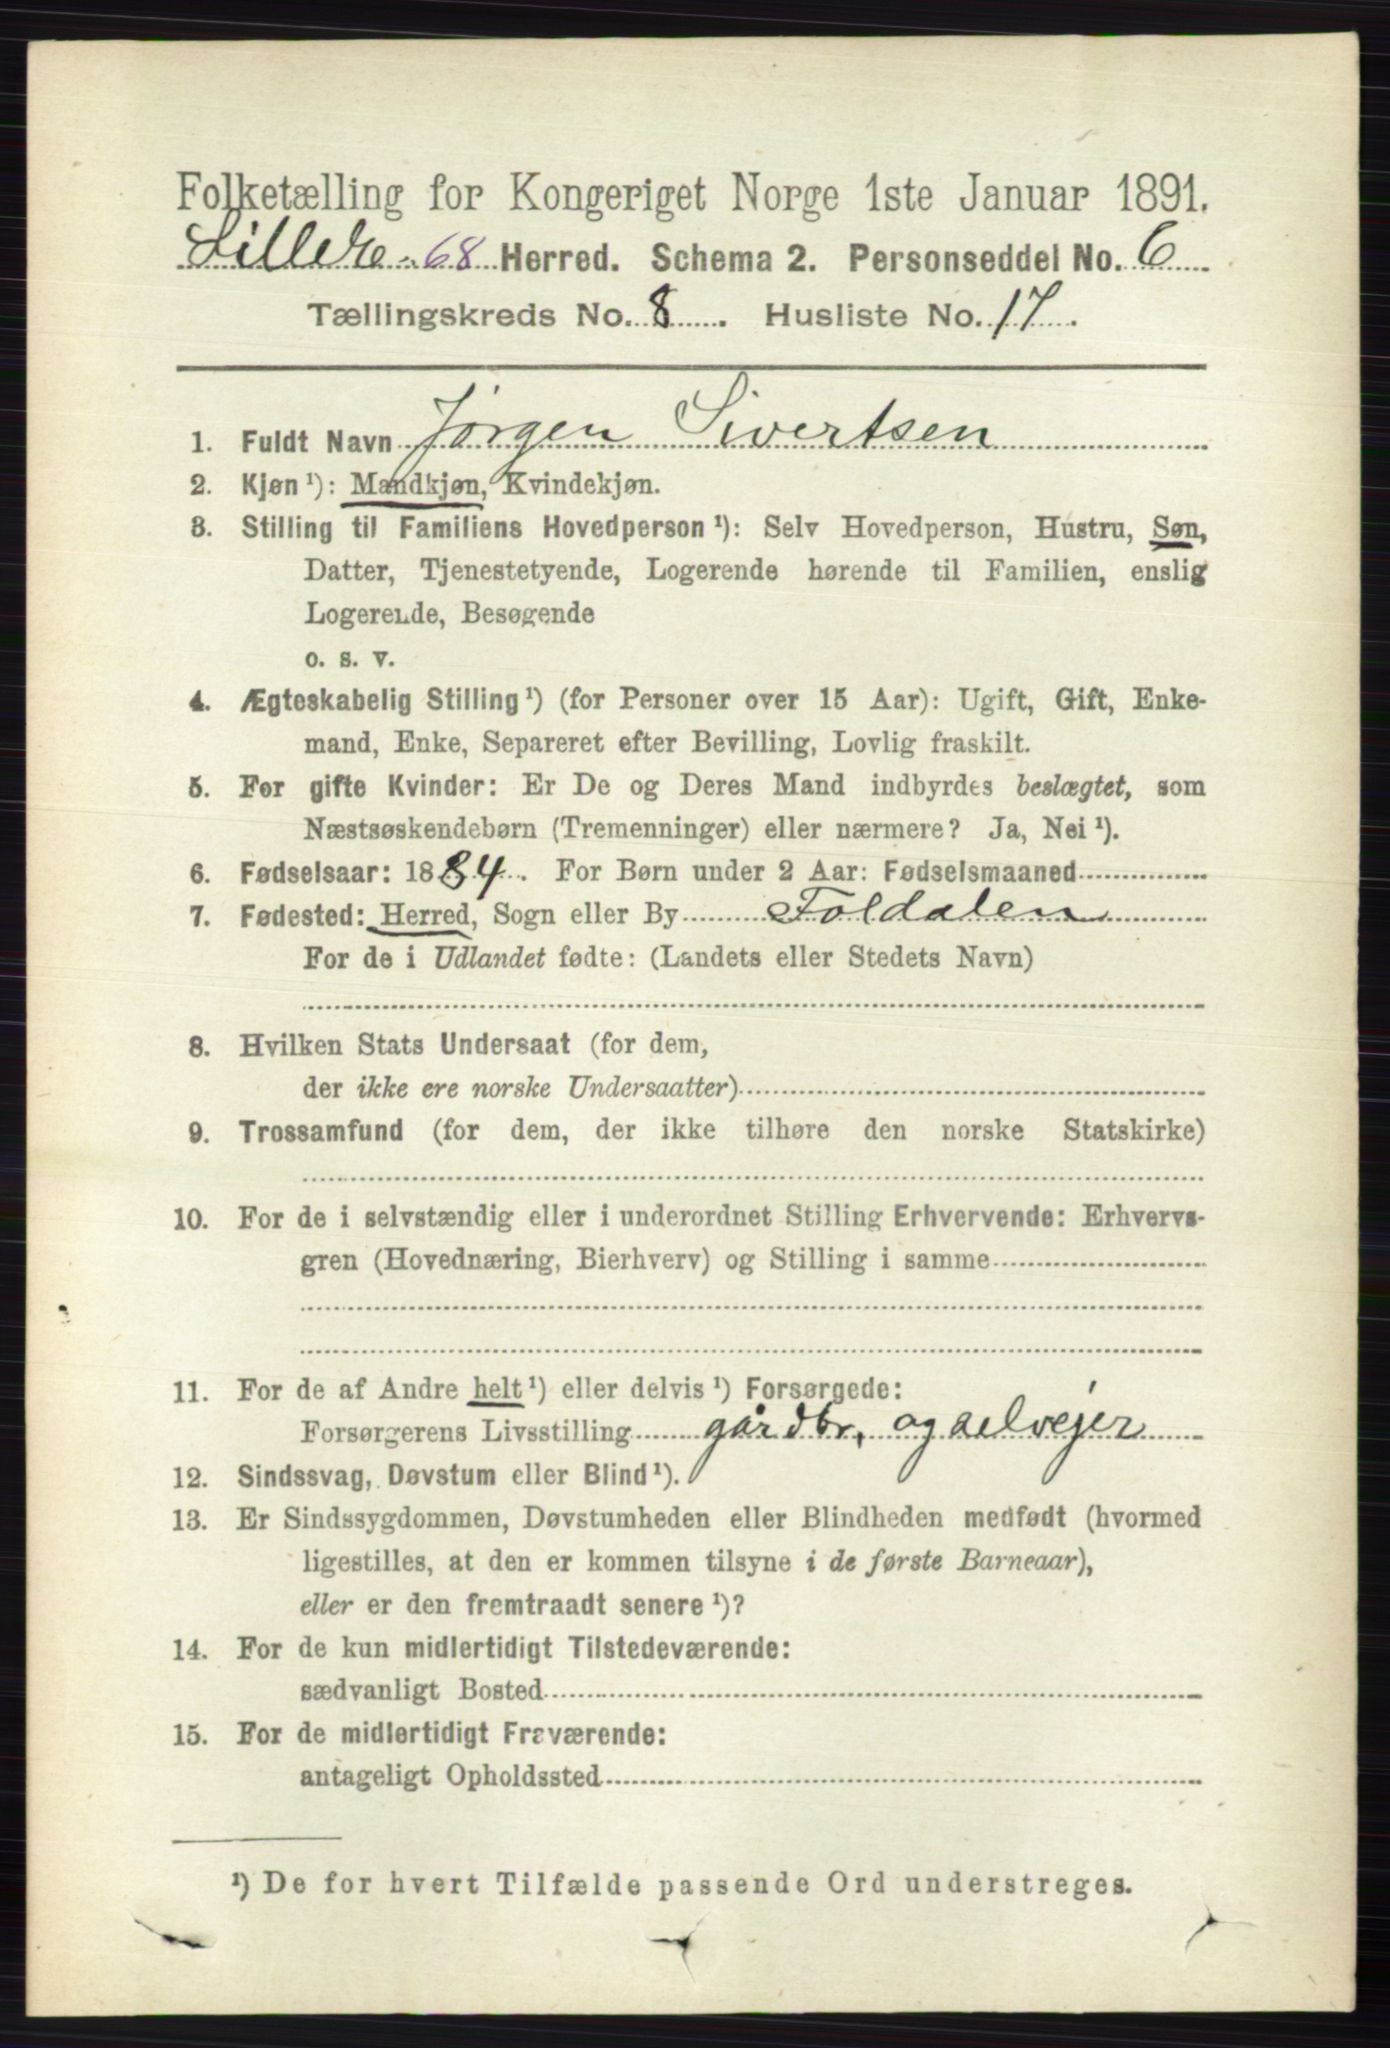 Folketælling for Kongeriget Norge 1ste Januar 1891.
Lillelv. 68 Herred. Schema 2. Personseddel No. 6
Tællingskreds No. 8. Husliste No. 17.
1. Fuldt Navn Jørgen Sivertsen
2. Kjøn ¹): Mandkjøn, Kvindekjøn.
3. Stilling til Familiens Hovedperson ¹): Selv Hovedperson, Hustru, Søn,
Datter, Tjenestetyende, Logerende hørende til Familien, enslig
Logerende, Besøgende
o. s. v.
4. Ægteskabelig Stilling ¹) (for Personer over 15 Aar): Ugift, Gift, Enke-
mand, Enke, Separeret efter Bevilling, Lovlig fraskilt.
5. For gifte Kvinder: Er De og Deres Mand indbyrdes beslægtet, som
Næstsøskendebørn (Tremenninger) eller nærmere? Ja, Nei ¹).
6. Fødselsaar: 1884. For Børn under 2 Aar: Fødselsmaaned
7. Fødested: Herred, Sogn eller By Foldalen
For de i Udlandet fødte: (Landets eller Stedets Navn)
8. Hvilken Stats Undersaat (for dem,
der ikke ere norske Undersaatter)
9. Trossamfund (for dem, der ikke tilhøre den norske Statskirke)
10. For de i selvstændig eller i underordnet Stilling Erhvervende: Erhvervs-
gren (Hovednæring, Bierhverv) og Stilling i samme
11. For de af Andre helt ¹) eller delvis ¹) Forsørgede:
Forsørgerens Livsstilling gårdbr, og selvejer
12. Sindssvag, Døvstum eller Blind ¹).
13. Er Sindssygdommen, Døvstumheden eller Blindheden medfødt (hvormed
ligestilles, at den er kommen tilsyne i de første Barneaar),
eller er den fremtraadt senere ¹)?
14. For de kun midlertidigt Tilstedeværende:
sædvanligt Bosted
15. For de midlertidigt Fraværende:
antageligt Opholdssted
¹) De for hvert Tilfælde passende Ord understreges.